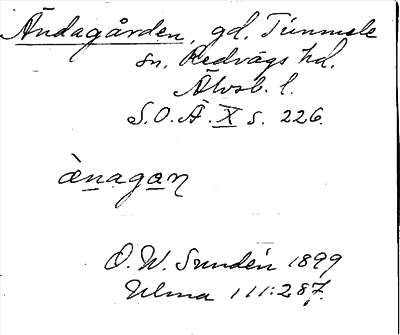 Ändagården, gd, Timmele
sn, Redvägs hd.
Älvsb. l.
S.O.Ä. X s. 226.
ànagaŋ
O. W. Sundén 1899
Ulma 111:287.